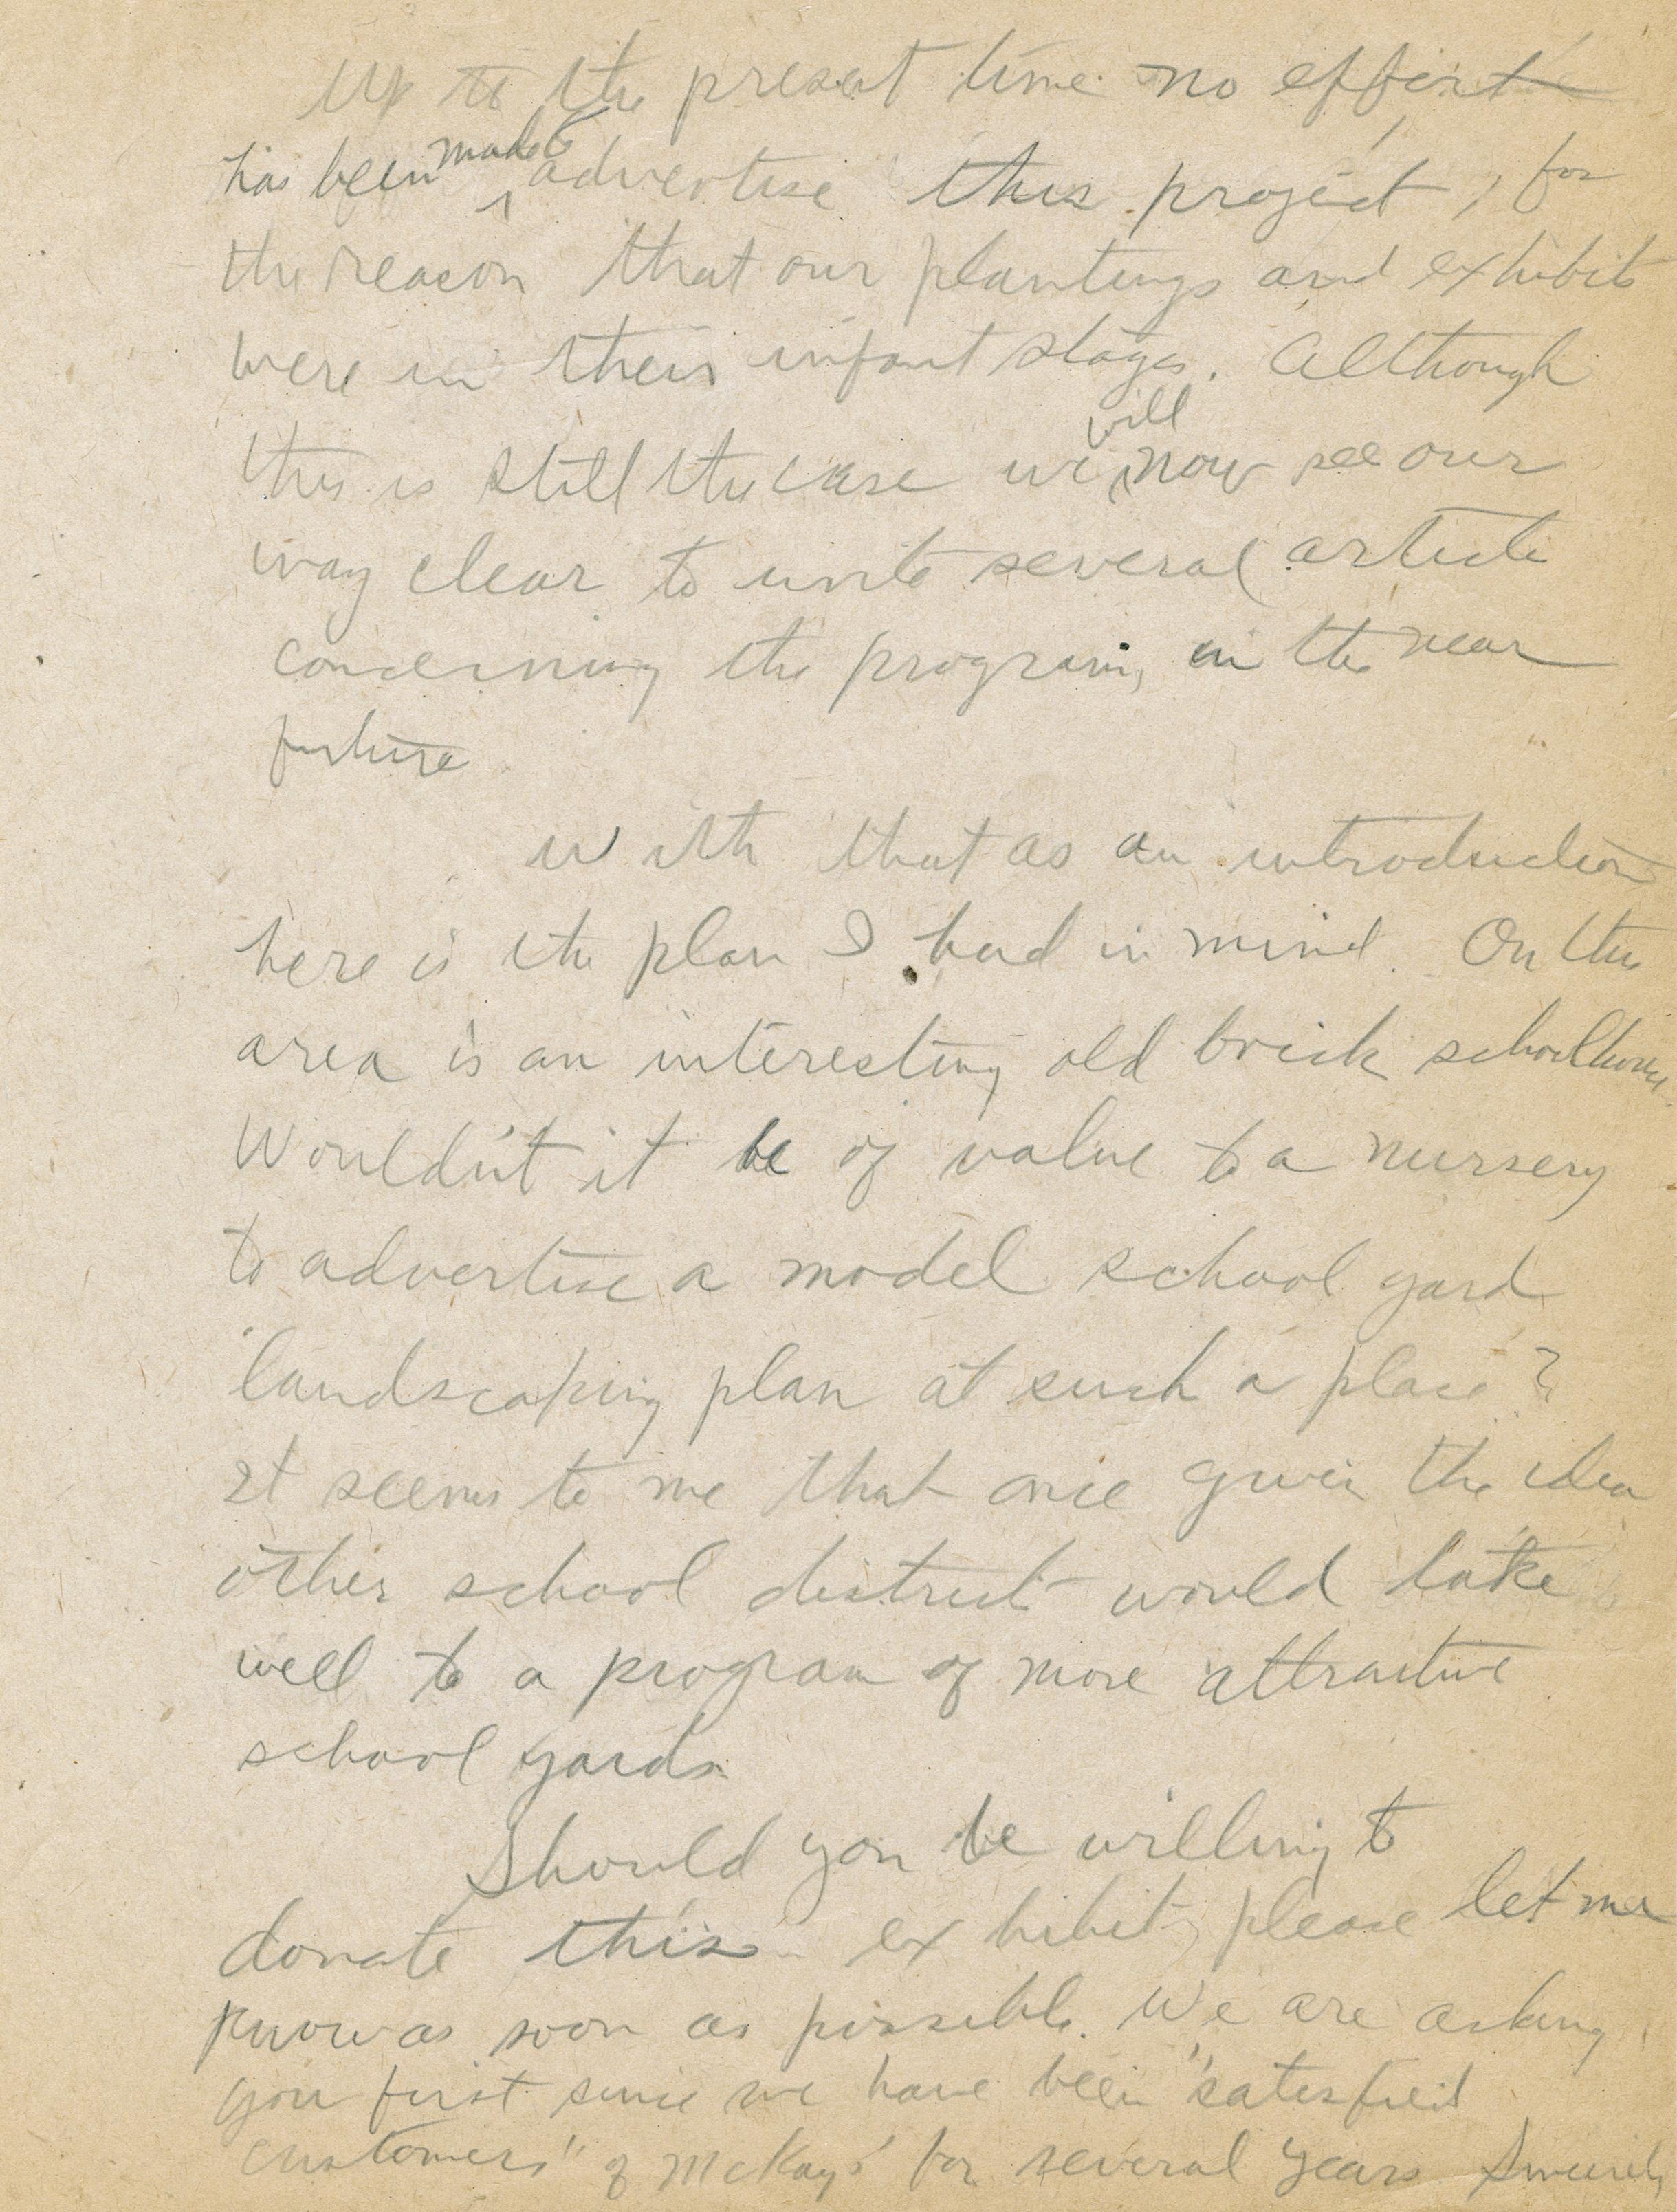 Up to the present time no effort
has been made to advertise this project, for
the reason that our plantings and exhibits
were in their infant stages. Although
this is still the case we will now see our
way clear to write several article
concerning the program, in the near
future
With that as an introduction
here is the plan I had in mind. On the
area is an interesting old brick schoolhouse.
Wouldn't it be of value to a nursery
to advertise a model school yard
landscaping plan at such a place?
It seems to me that once given the idea
other school districts would take
well to a program of more attractive
school yards.
Should you be willing to
donate this exhibit, please let me
know as soon as possible. We are asking
you first since we have been "satisfied
customers" of McKays' for several years Sincerely